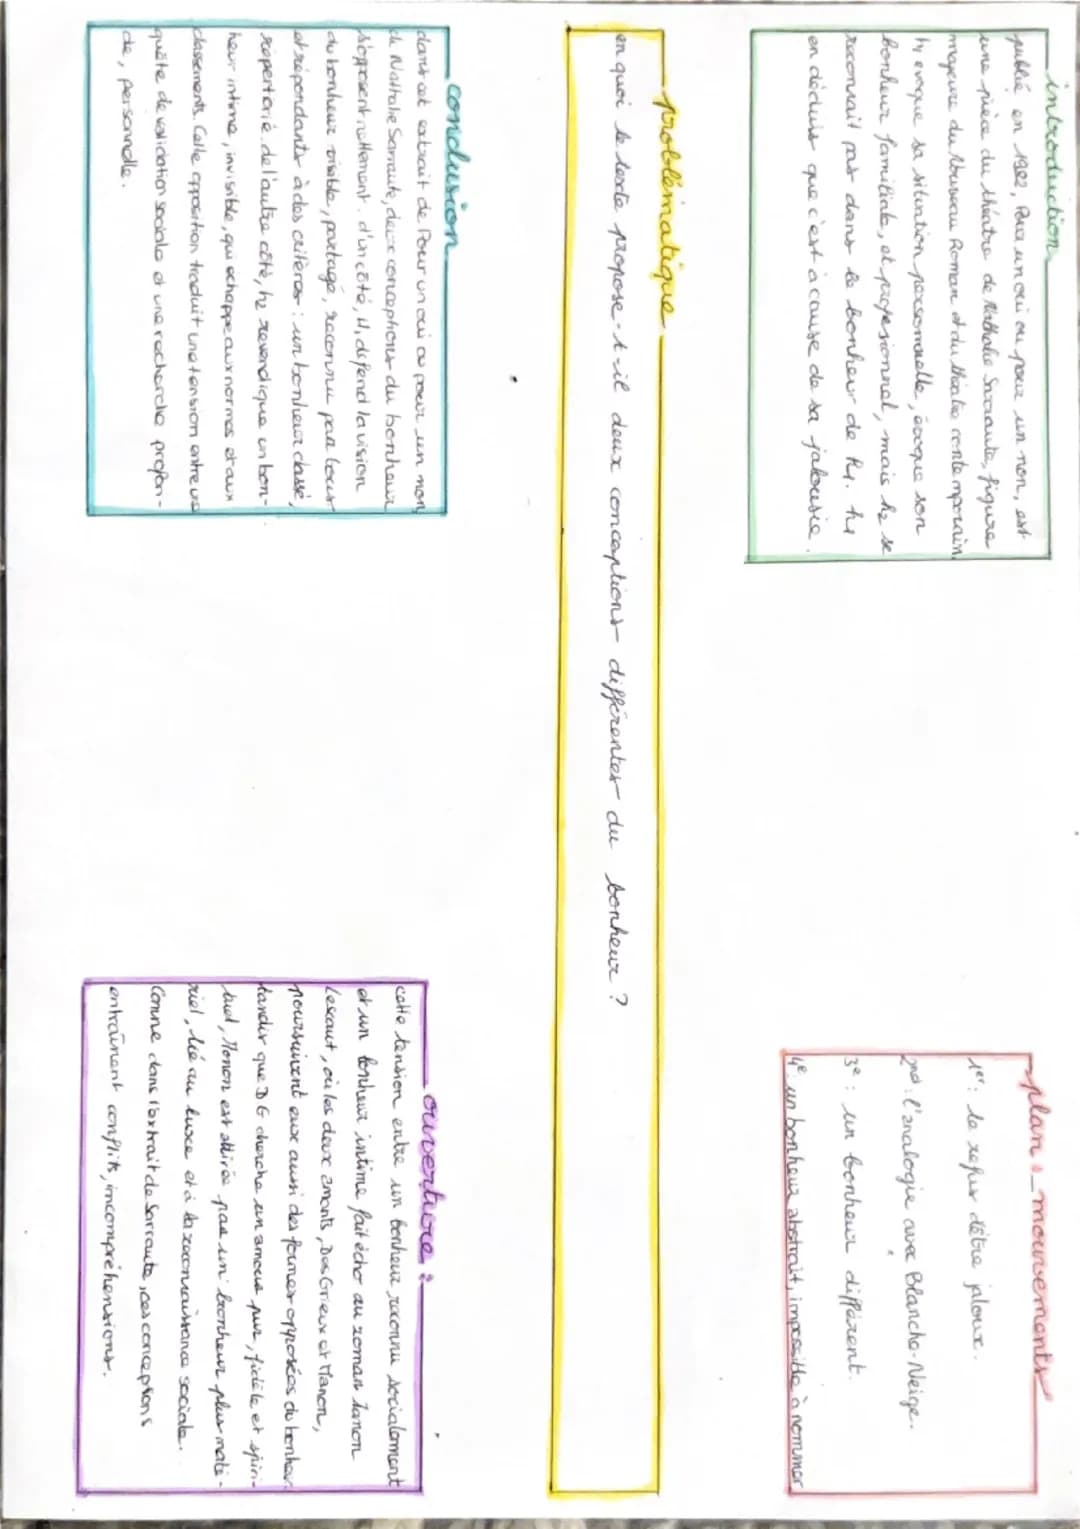 introduction
publié en 1982, Pour un oui ou pour un non, est
une pièce du théatre de Nathalie Sarraute, figure
majeure du Nouveau Roman et du théatre contemporain.
H1 evoque sa situation personnelle, évoque son
bonheur familiale, et profesionnel, mais H2 se
reconnait pas dans le bonheur de H1. H1
en déduis que c'est à cause de sa jalousie.
plan : mouvements
1er : le refus d'être jaloux.
2nd : l'analogie avec Blanche-Neige.
3e : un bonheur différent.
4e un bonheur abstrait, impossible à nommer
problématique
en quoi le texte propose-t-il deux conceptions différentes du bonheur ?
conclusion
dans cet extrait de Pour un oui ou pour un non,
de Nathalie Sarraute, deux conceptions du bonheur
s'opposent nettement. d'un côté, H1 défend la vision
du bonheur visible, partagé, reconnu par tous
et répondants à des critères : un bonheur classé,
répertorié. de l'autre côté, H2 revendique un bon-
heur intime, invisible, qui échappe aux normes et aux
classements. Cette opposition traduit une tension entre une
quête de validation sociale et une recherche profon-
de, personnelle.
ouverture :
cette tension entre un bonheur reconnu socialement
et un bonheur intime fait écho au roman Manon
Lescaut, où les deux amants, Des Grieux et Manon,
poursuivent eux aussi des formes opposées du bonheur.
tandis que DG cherche un amour pur, fidèle et spiri-
tuel, Manon est attirée par un bonheur plus maté-
riel, lié au luxe et à la reconnaissance sociale.
Comme dans l'extrait de Sarraute, ces conceptions
entraînent conflits, incompréhensions.